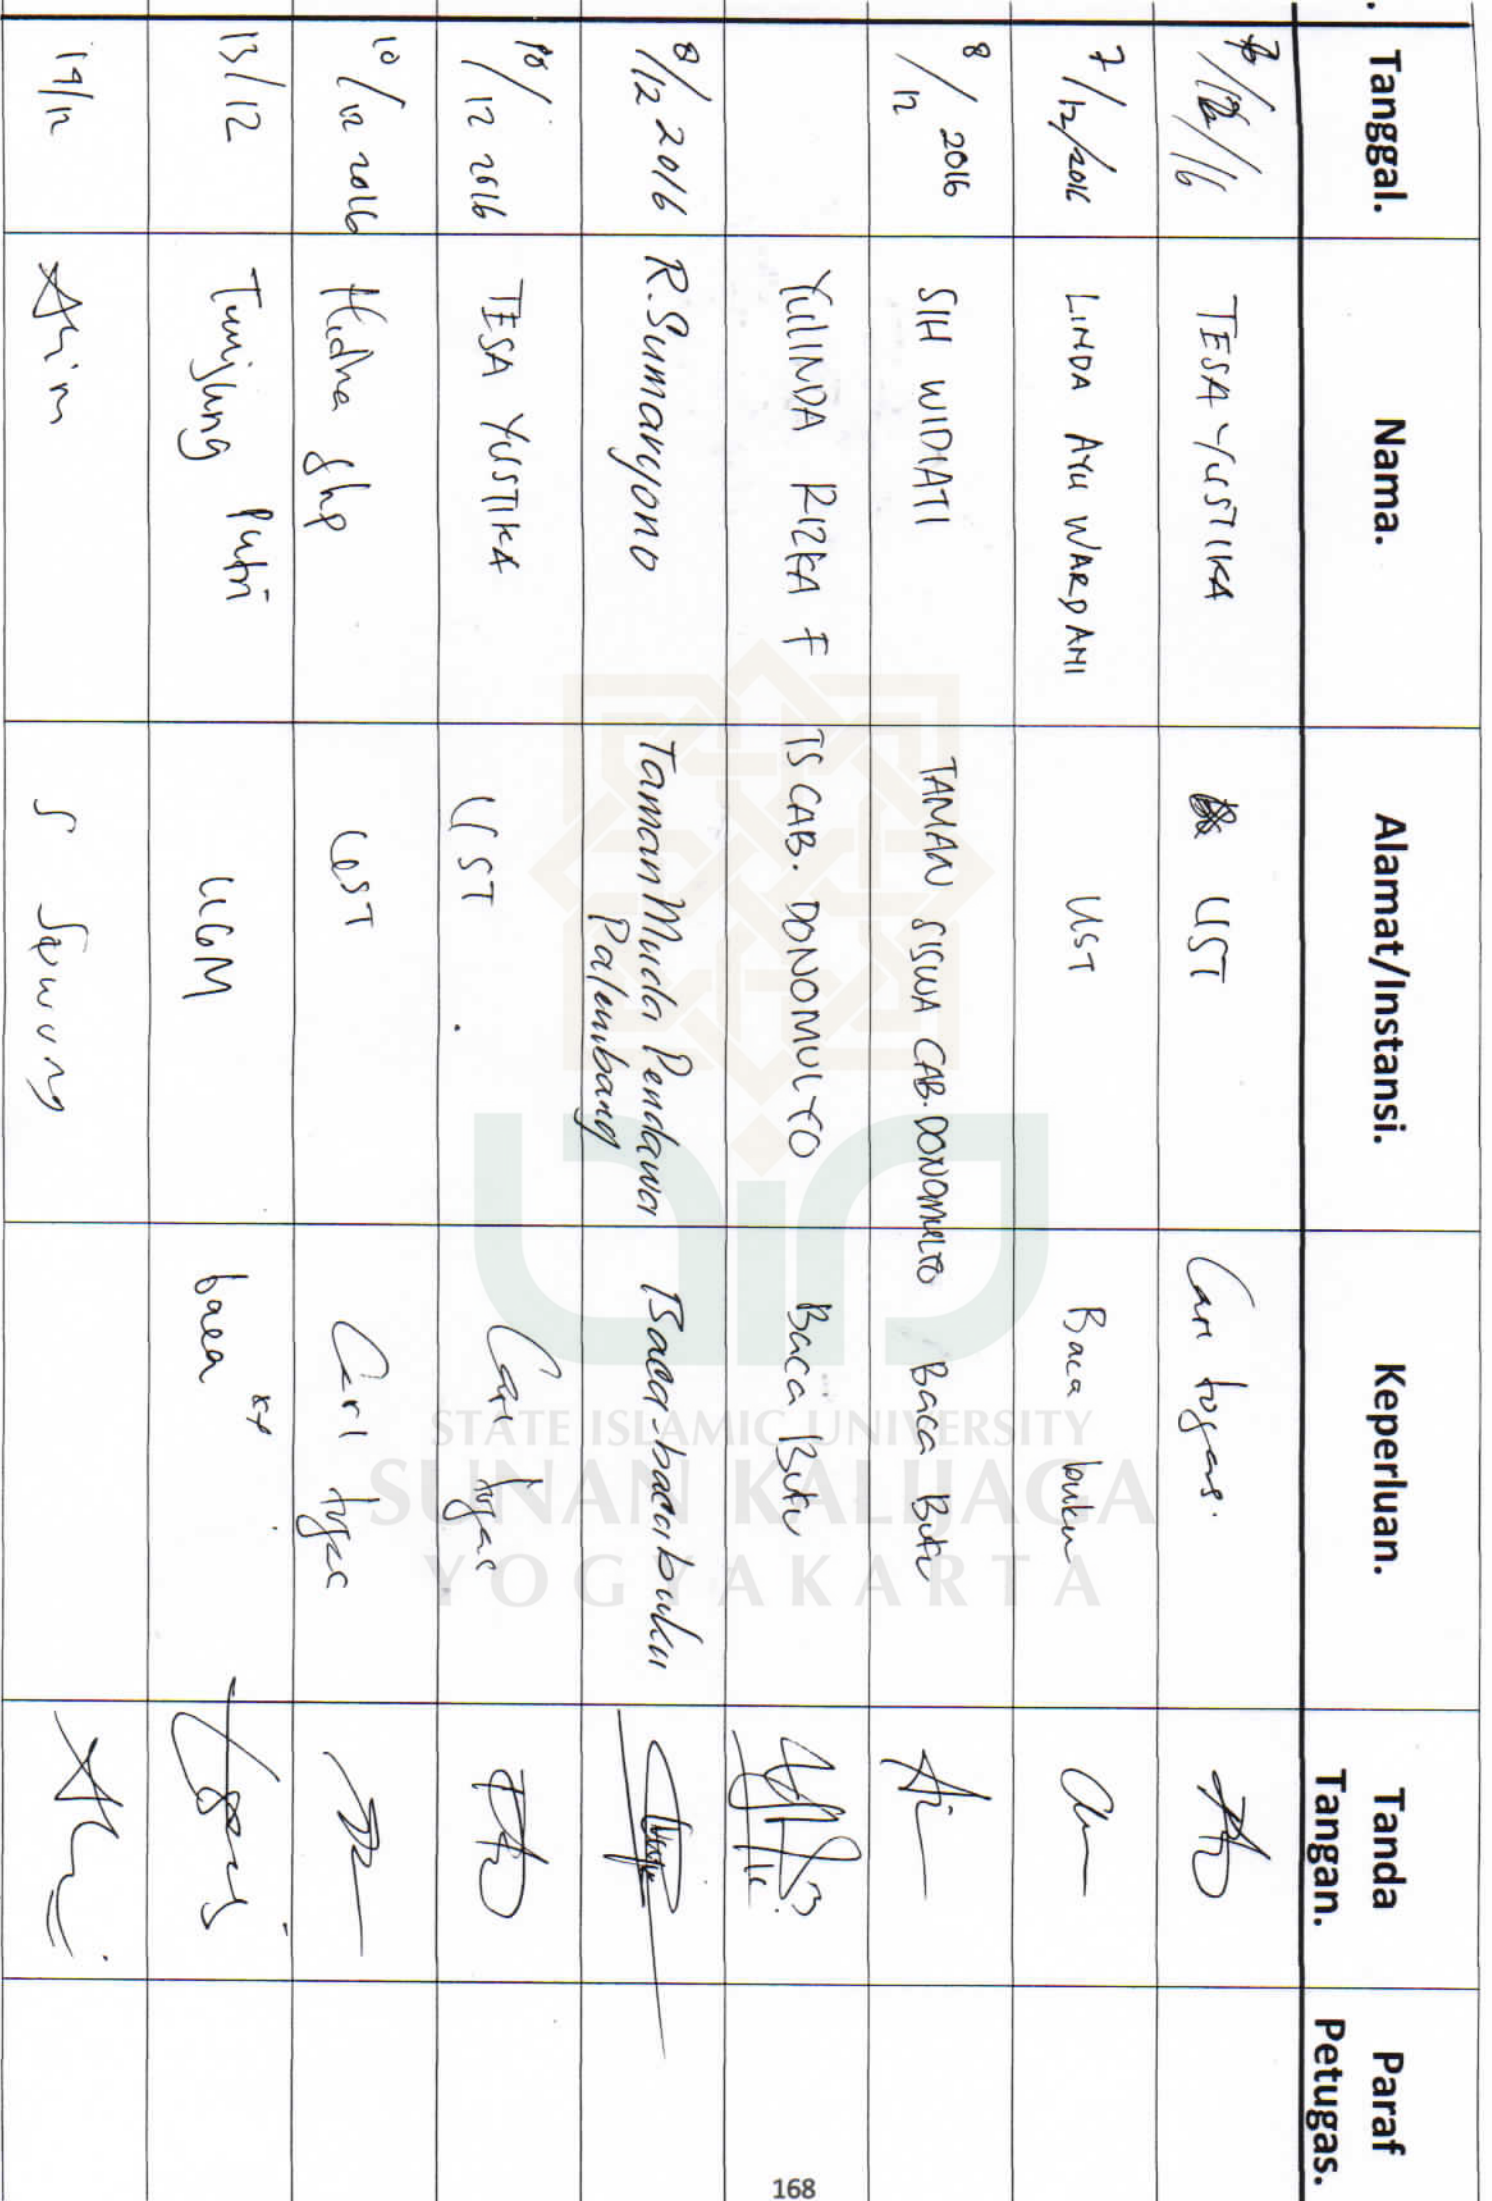 Tanggal. Nama. Alamat/Instansi. Keperluan. Tanda Tangan. Paraf Petugas.
TESA YUSTIKA UST Cari tugas.
7/12/2016 LINDA AYU WARDANI UST Baca buku
8/12 2016 SIH WIDIATI TAMAN SISWA CAB. DONOMULYO Baca Buku
YULINDA RIZKA F TS CAB. DONOMULYO Baca Buku
8/12 2016 R. Sumaryono Taman Muda Pendawa Baca-baca buku
Palembang
10/12 2016 TESA YUSTIKA UST Cari tugas
10/12 2016 UST Cari tugas
13/12 Tunjung Putri UGM baca
STATE ISLAMIC UNIVERSITY
SUNAN KALIJAGA
YOGYAKARTA
168